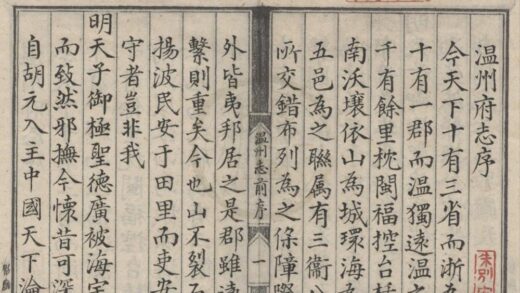 温州府志序
今天下十有三省而浙為
十有一郡而温獨遠温之
千有餘里枕閩福控台括
南沃壤依山為城環海為
五邑為之聯属有三衞八
所交錯布列為之保障
外皆夷邦居之是郡雖逺
繫則重矣今也山不裂石
揚波民安于田里而吏安
守者豈非我
明天子御極聖德廣被海宇
而致然邪撫今懷昔可深
自胡元入主中國天下淪
温州志前序
一